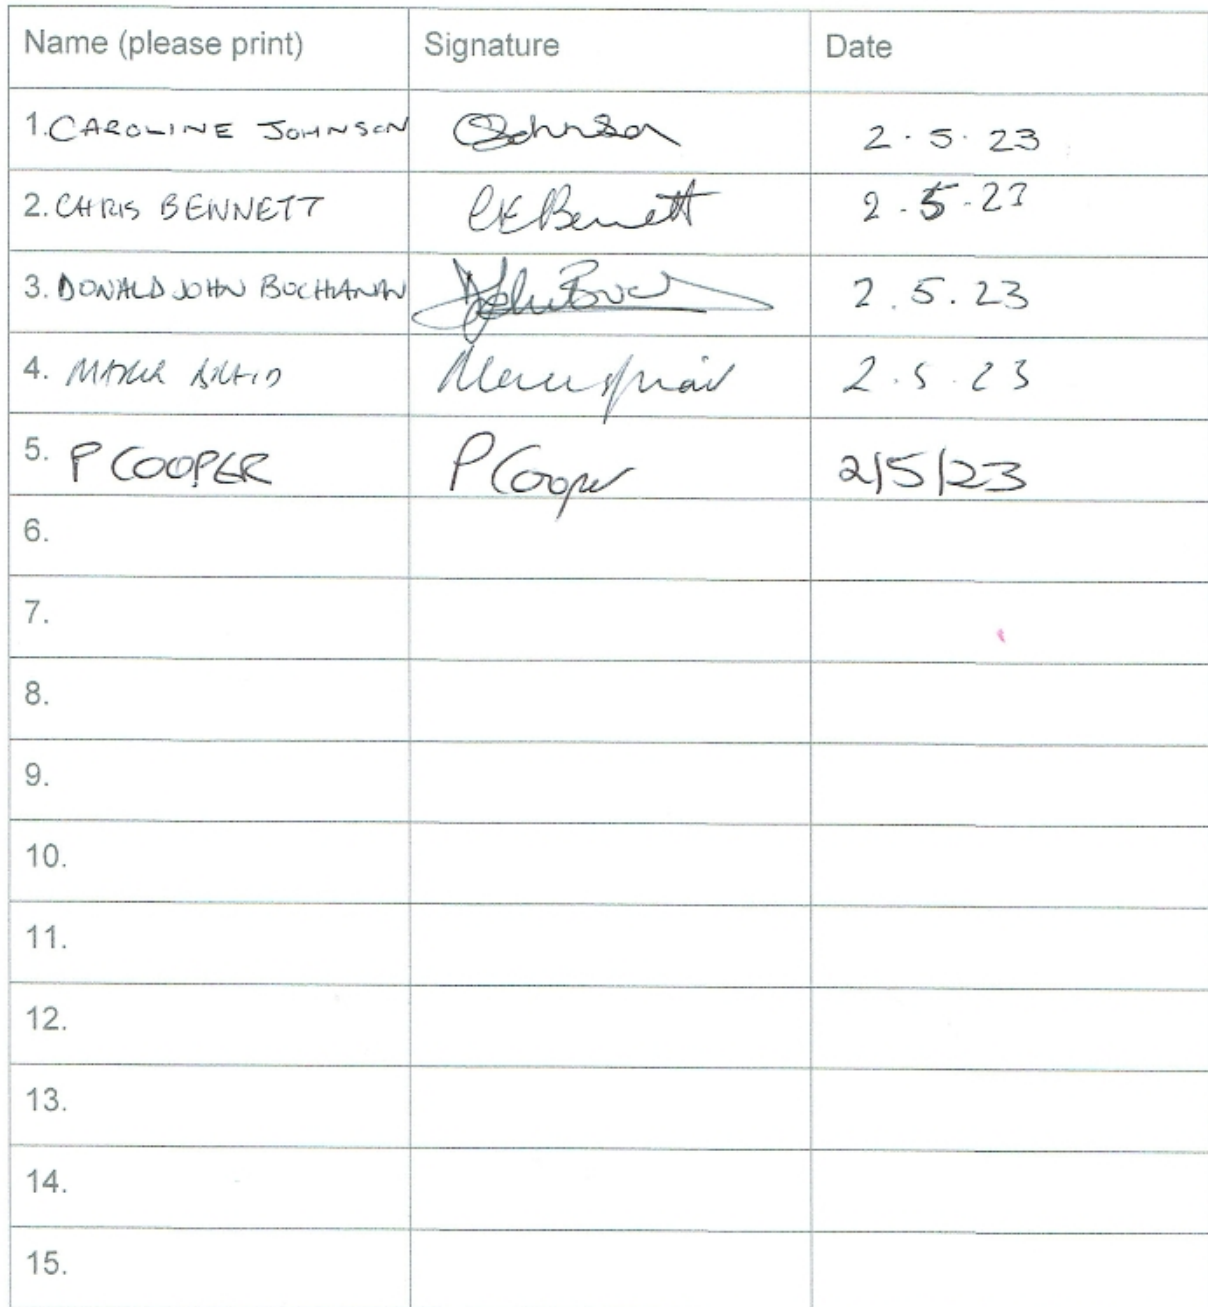 Name (please print) Signature Date
1. CAROLINE JOHNSON CJohnson 2.5.23
2. CHRIS BENNETT CEBennett 2.5.23
3. DONALD JOHN BUCHANAN 2.5.23
4. 2.5.23
5. P COOPER P Cooper 2/5/23
6.
7.
8.
9.
10.
11.
12.
13.
14.
15.